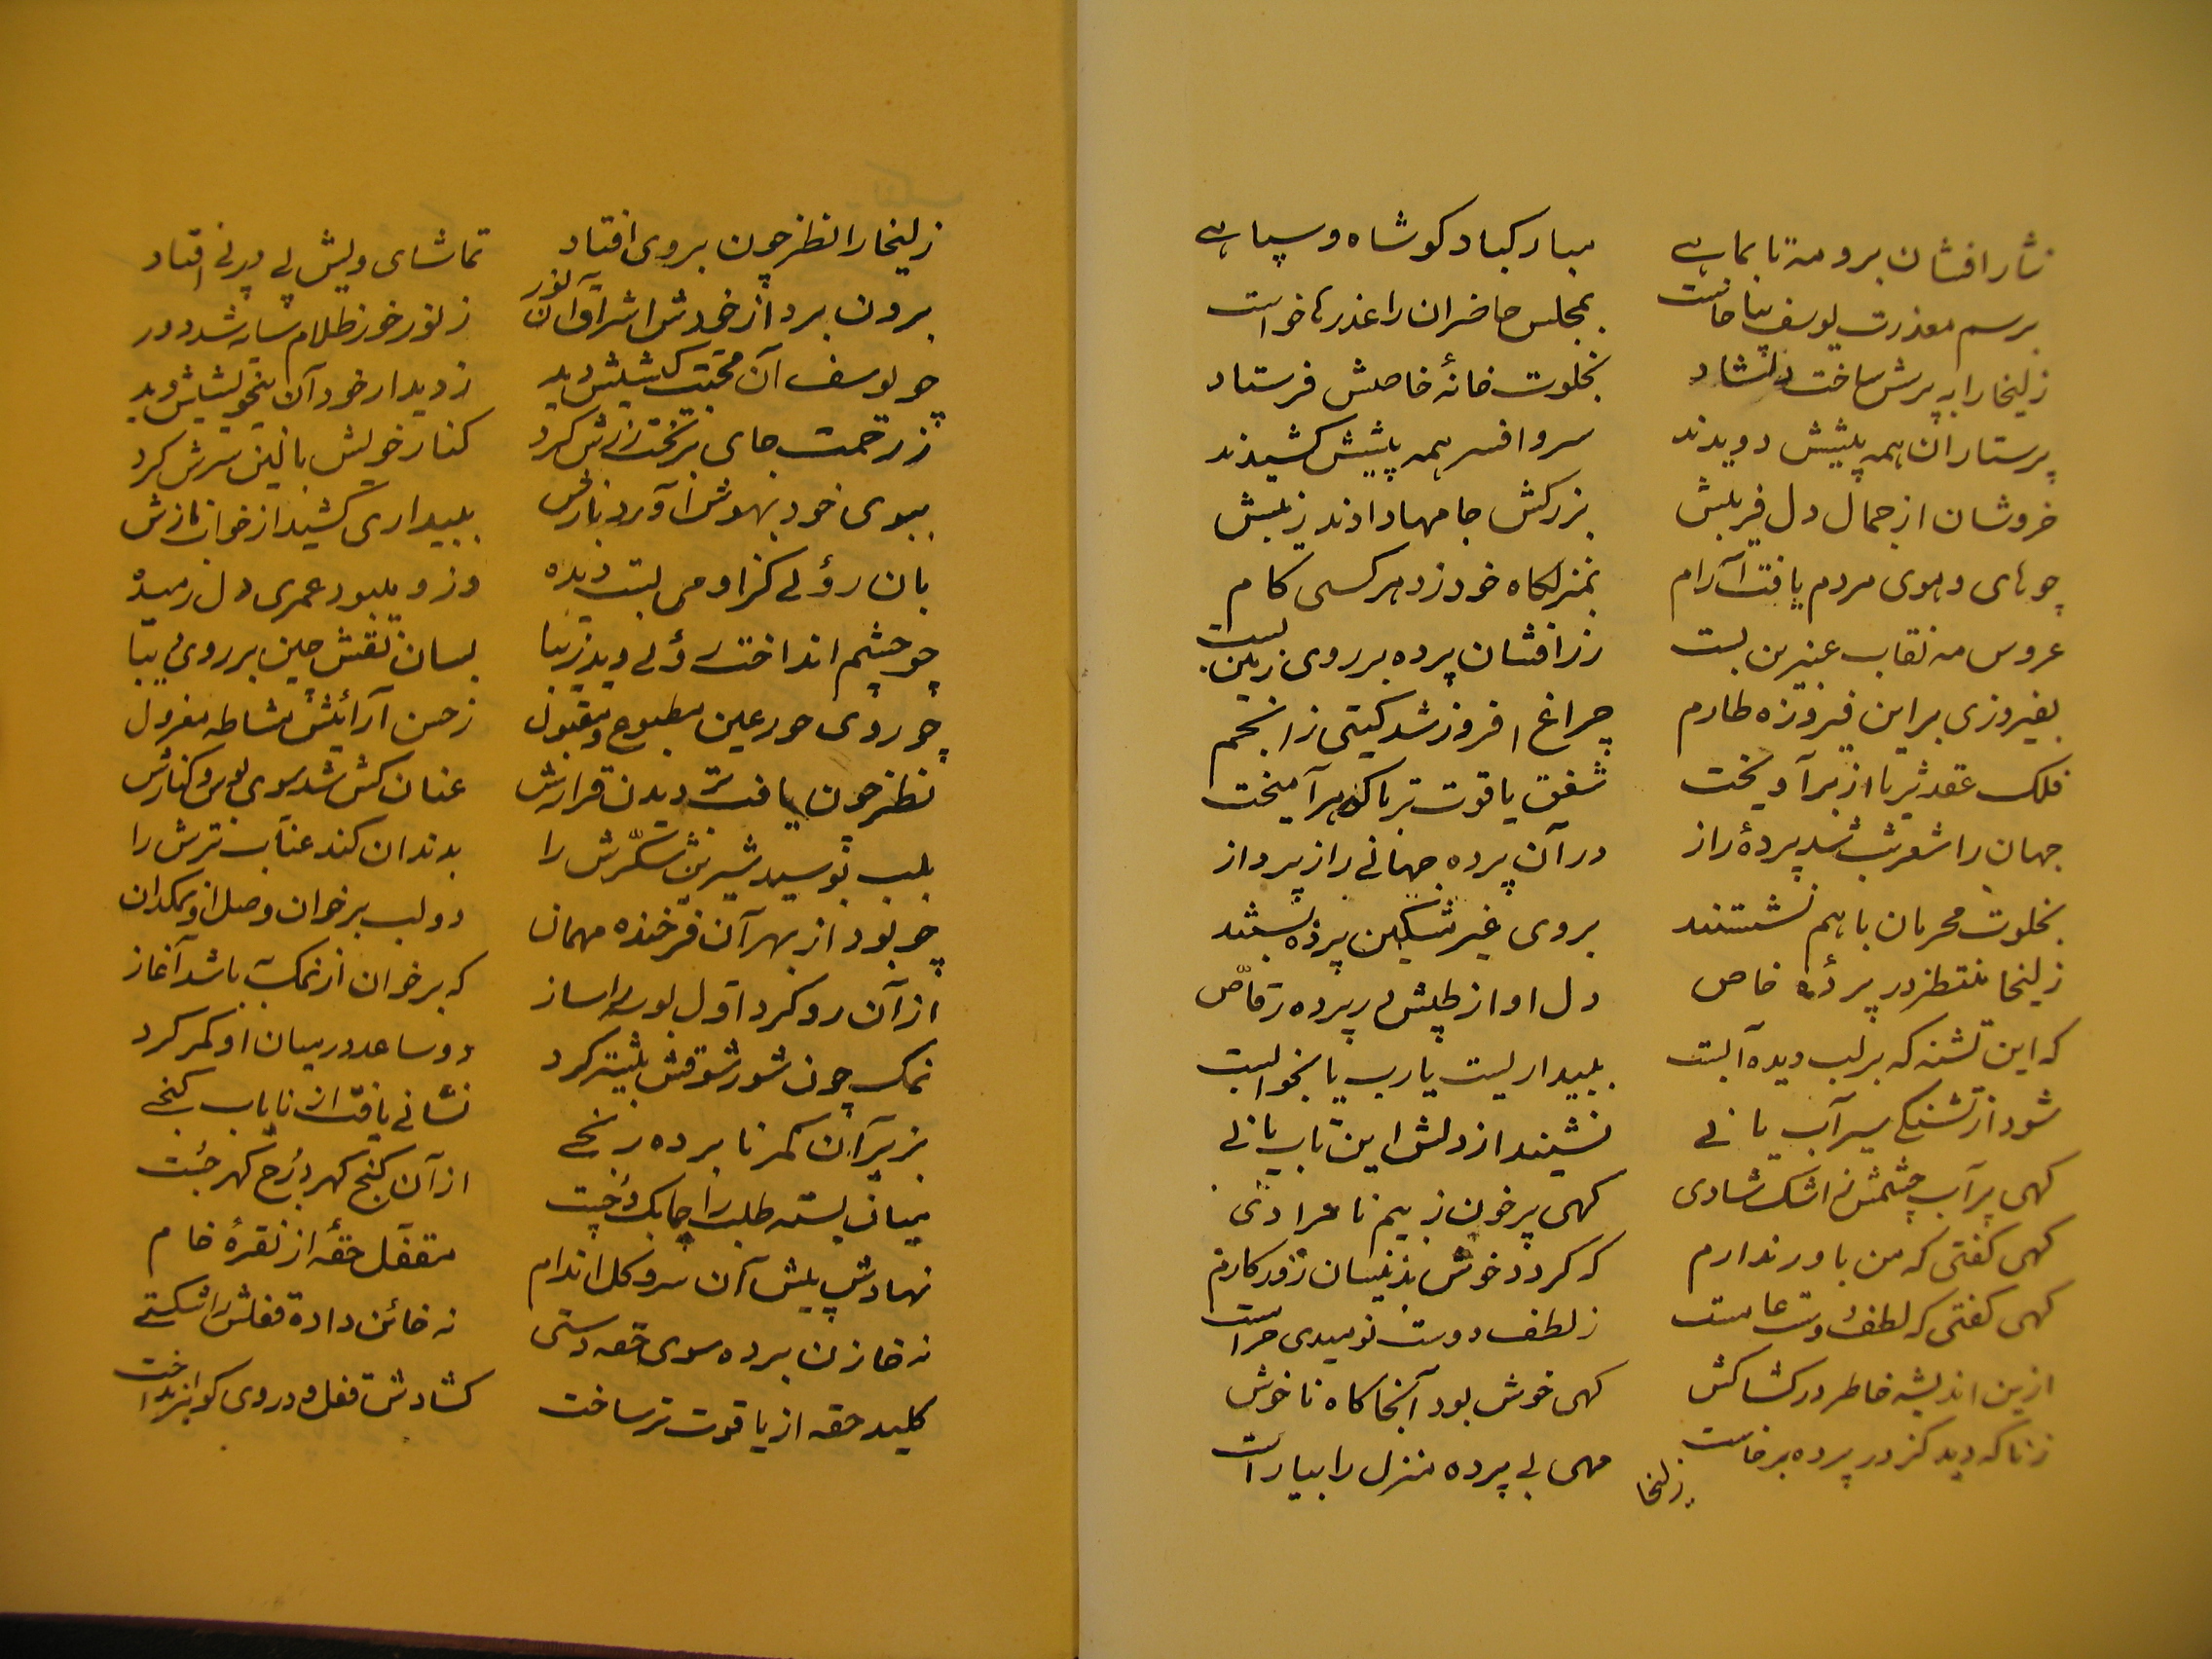 نثار افشان برو مه تا بماهے
مبارکباد کو شاه و سپاهے
برسم معذرت یوسف بپا خاست
بمجلس حاضران را عذرها خواست
زلیخا را به پرسش ساخت دلشاد
بخلوت خانهٔ خاصش فرستاد
پرستاران همه پیشش دویدند
سر و افسر همه پیشش کشیدند
خروشان از جمال دل فریبش
بزرکش جامها دادند زیبش
چو های و هوی مردم یافت آرام
بمنزلکاه خود زد هر کسی کام
عروس مه نقاب عنبرین بست
زرافشان پرده بر روی زمین بست
بفیروزی بر این فیروزه طارم
چراغ افروز شد کیتی ز انجم
فلک عقد ثریا از بر آویخت
شفق یاقوت تر با کوهر آمیخت
جهان را شعر شب شد پردهٔ راز
در آن پرده جهانے راز پرداز
بخلوت محرمان با هم نشستند
بروی غیر مشکین پرده بستند
زلیخا منتظر در پردهٔ خاص
دل او از طپش در پرده رقّاص
که این تشنه که بر لب دیده آبست
ببیداریست یارب یا بخوابست
شود از تشنکے سیرآب یا نے
نشیند از دلش این تاب یا نے
کهی پر آب چشمش ز اشک شادی
کهی پر خون ز بیم نامرادی
کهی کفتی که من باور ندارم
که کردد خوش بدینسان روزکارم
کهی کفتی که لطف دوست عامست
ز لطف دوست نومیدی حرامست
ازین اندیشه خاطر در کشاکش
کهی خوش بود آنجا کاه ناخوش
زناکه دید کز در پرده برخاست
مهی بے پرده منزل را بیاراست
زلیخا
زلیخا را نظر چون بروی افتاد
تماشای ویش پے در پے افتاد
برون برد از خودش اشراق آن نور
ز نور خور ظلام سایه شد دور
چو یوسف آن محبت کیشیش دید
ز دیدار خود آن بیخویشیش دید
ز رحمت جای بر تخت زرش کرد
کنار خویش بالین سرش کرد
ببوی خود بهوش آورد بازش
ببیداری کشید از خواب نازش
بان روئے کز او می بست دیده
وز و میبود عمری دل رمیده
چو چشم انداخت روئے دید زیبا
بسان نقش چین بر روی دیبا
چو روی حور عین مطبوع و مقبول
ز حسن آرائیش مشاطه معزول
نظر چون یافت در دیدن قرارش
عنان کش شد سوی بوس و کنارش
بلب بوسید شیرین شکّرش را
بدندان کند عنّاب ترش را
چو بود از بهر آن فرخنده مهمان
دو لب بر خوان وصل او نمکدان
از آن رو کرد اوّل بوسه را ساز
که بر خوان از نمک باشد آغاز
نمک چون شور شوقش بیشتر کرد
دو ساعد در میان او کمر کرد
بزیر آن کمر نابرده رنجے
نشانے یافت از نایاب کنجے
میان بسته طلب را چابک و چست
از آن کنج کهر درج کهر جست
نهادش پیش آن سرو کل اندام
مقفّل حقّهٔ از نقرهٔ خام
نه خازن برده سوی حقه دستی
نه خائن داده قفلش را شکستے
کلید حقه از یاقوت تر ساخت
کشادش قفل و در وی کوهر انداخت